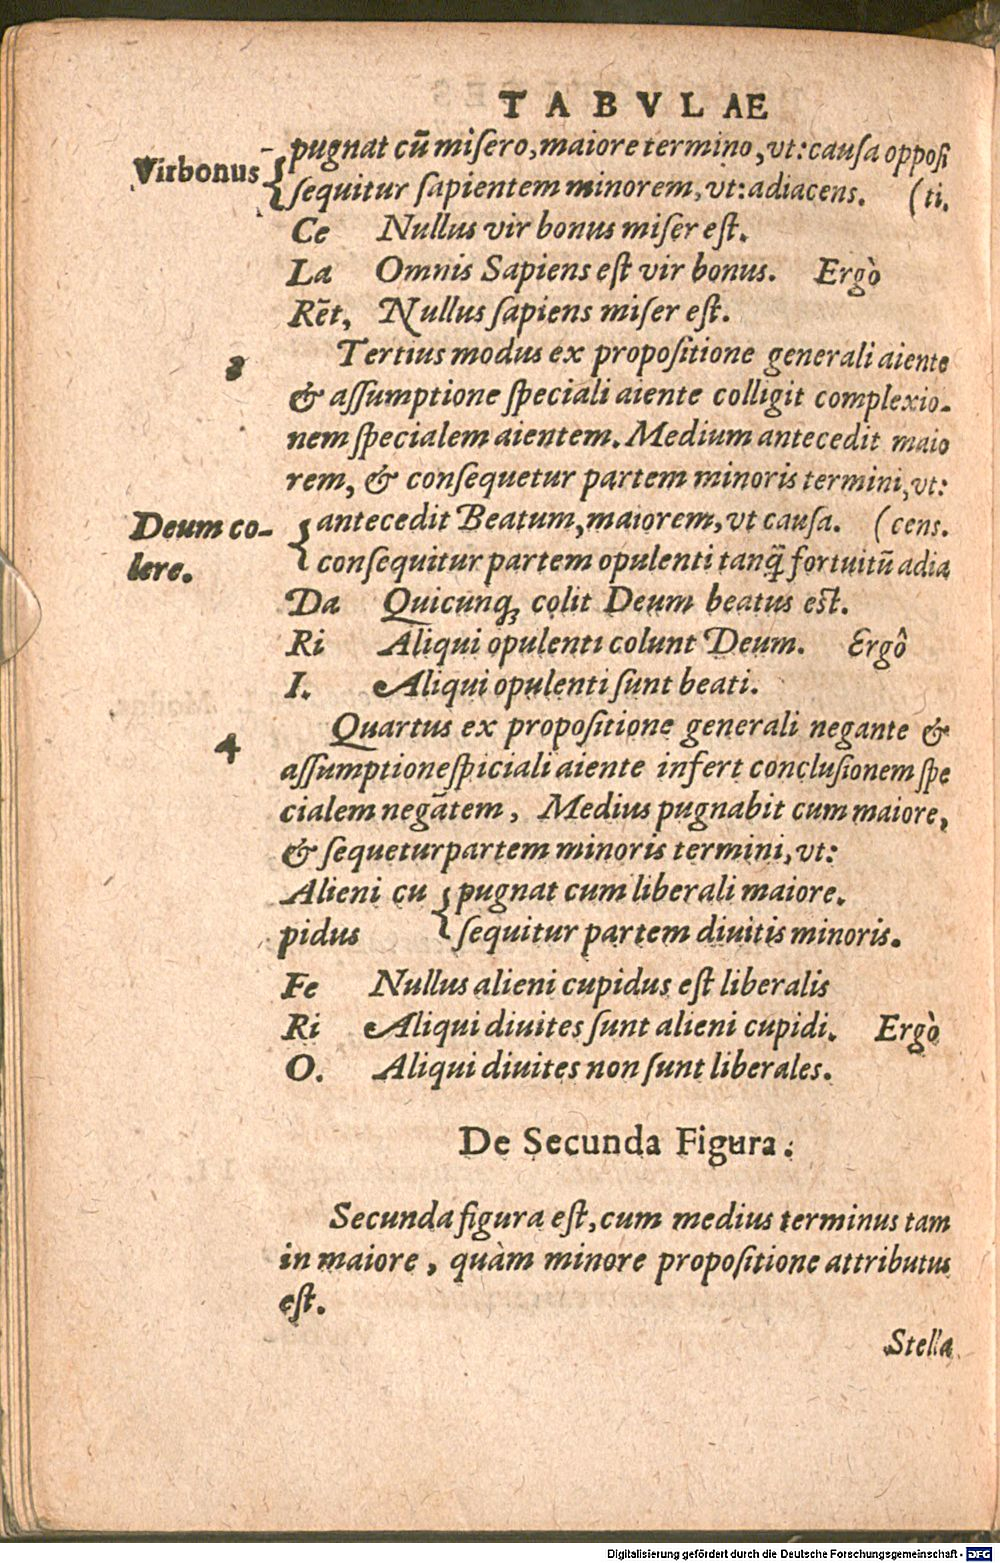 TABVLAE
Virbonus
pugnat cū misero, maiore termino, vt: causa opposi
sequitur sapientem minorem, vt: adiacens. (ti.
Ce Nullus vir bonus miser est.
La Omnis Sapiens est vir bonus. Ergò
Rēt, Nullus sapiens miser est.
3
Tertius modus ex propositione generali aiente
& assumptione speciali aiente colligit complexio-
nem specialem aientem. Medium antecedit maio
rem, & consequetur partem minoris termini, vt:
Deum co-
lere.
antecedit Beatum, maiorem, vt causa. (cens.
consequitur partem opulenti tanq̃ fortuitū adia
Da Quicunq; colit Deum beatus est.
Ri Aliqui opulenti colunt Deum. Ergô
I. Aliqui opulenti sunt beati.
4
Quartus ex propositione generali negante &
assumptione spiciali aiente infert conclusionem spe
cialem negātem, Medius pugnabit cum maiore,
& sequetur partem minoris termini, vt:
Alieni cu
pidus
pugnat cum liberali maiore.
sequitur partem diuitis minoris.
Fe Nullus alieni cupidus est liberalis
Ri Aliqui diuites sunt alieni cupidi. Ergò
O. Aliqui diuites non sunt liberales.
De Secunda Figura.
Secunda figura est, cum medius terminus tam
in maiore, quàm minore propositione attributus
est.
Stella
Digitalisierung gefördert durch die Deutsche Forschungsgemeinschaft - DFG